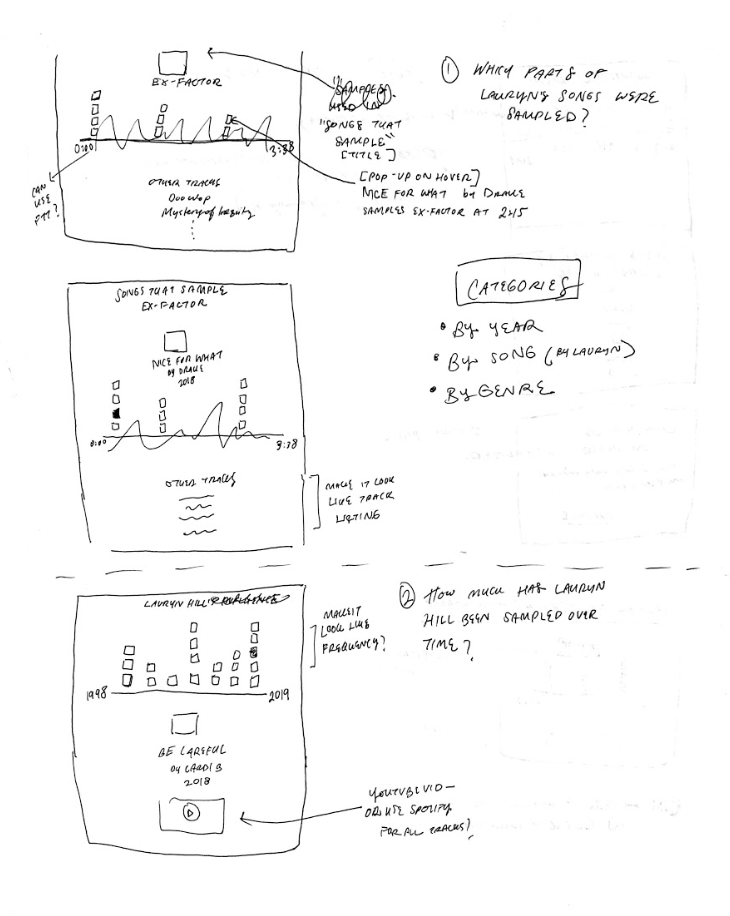 EX-FACTOR
0:00
3:38
OTHER TRACKS
Doo Wop
Mystery of Iniquity
CAN
USE
"SAMPLES
USED IN"
"SONGS THAT
SAMPLE"
[TITLE]
[POP-UP ON HOVER]
NICE FOR WHAT by DRAKE
SAMPLES EX-FACTOR AT 2:45
① WHICH PARTS OF
LAURYN'S SONGS WERE
SAMPLED?
SONGS THAT SAMPLE
EX-FACTOR
NICE FOR WHAT
BY DRAKE
2018
0:00
3:38
OTHER TRACKS
MAKE IT LOOK
LIKE TRACK
LISTING
CATEGORIES
• By YEAR
• By SONG (BY LAURYN)
• By GENRE
LAURYN HILL'S
1998
2019
MAKE IT
LOOK LIKE
FREQUENCY?
BE CAREFUL
BY CARDI B
2018
② HOW MUCH HAS LAURYN
HILL BEEN SAMPLED OVER
TIME?
YOUTUBE VID —
OR USE SPOTIFY
FOR ALL TRACKS?